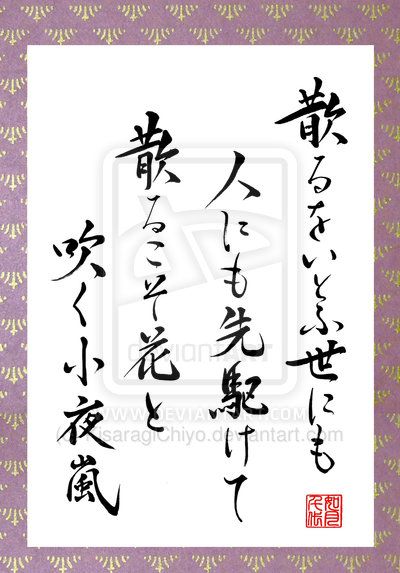 散るをいとふ世にも
人にも先駆けて
散るこそ花と
吹く小夜嵐
如月
千代
deviantART
WWW.DEVIANTART.COM
(c) KisaragiChiyo.deviantart.com